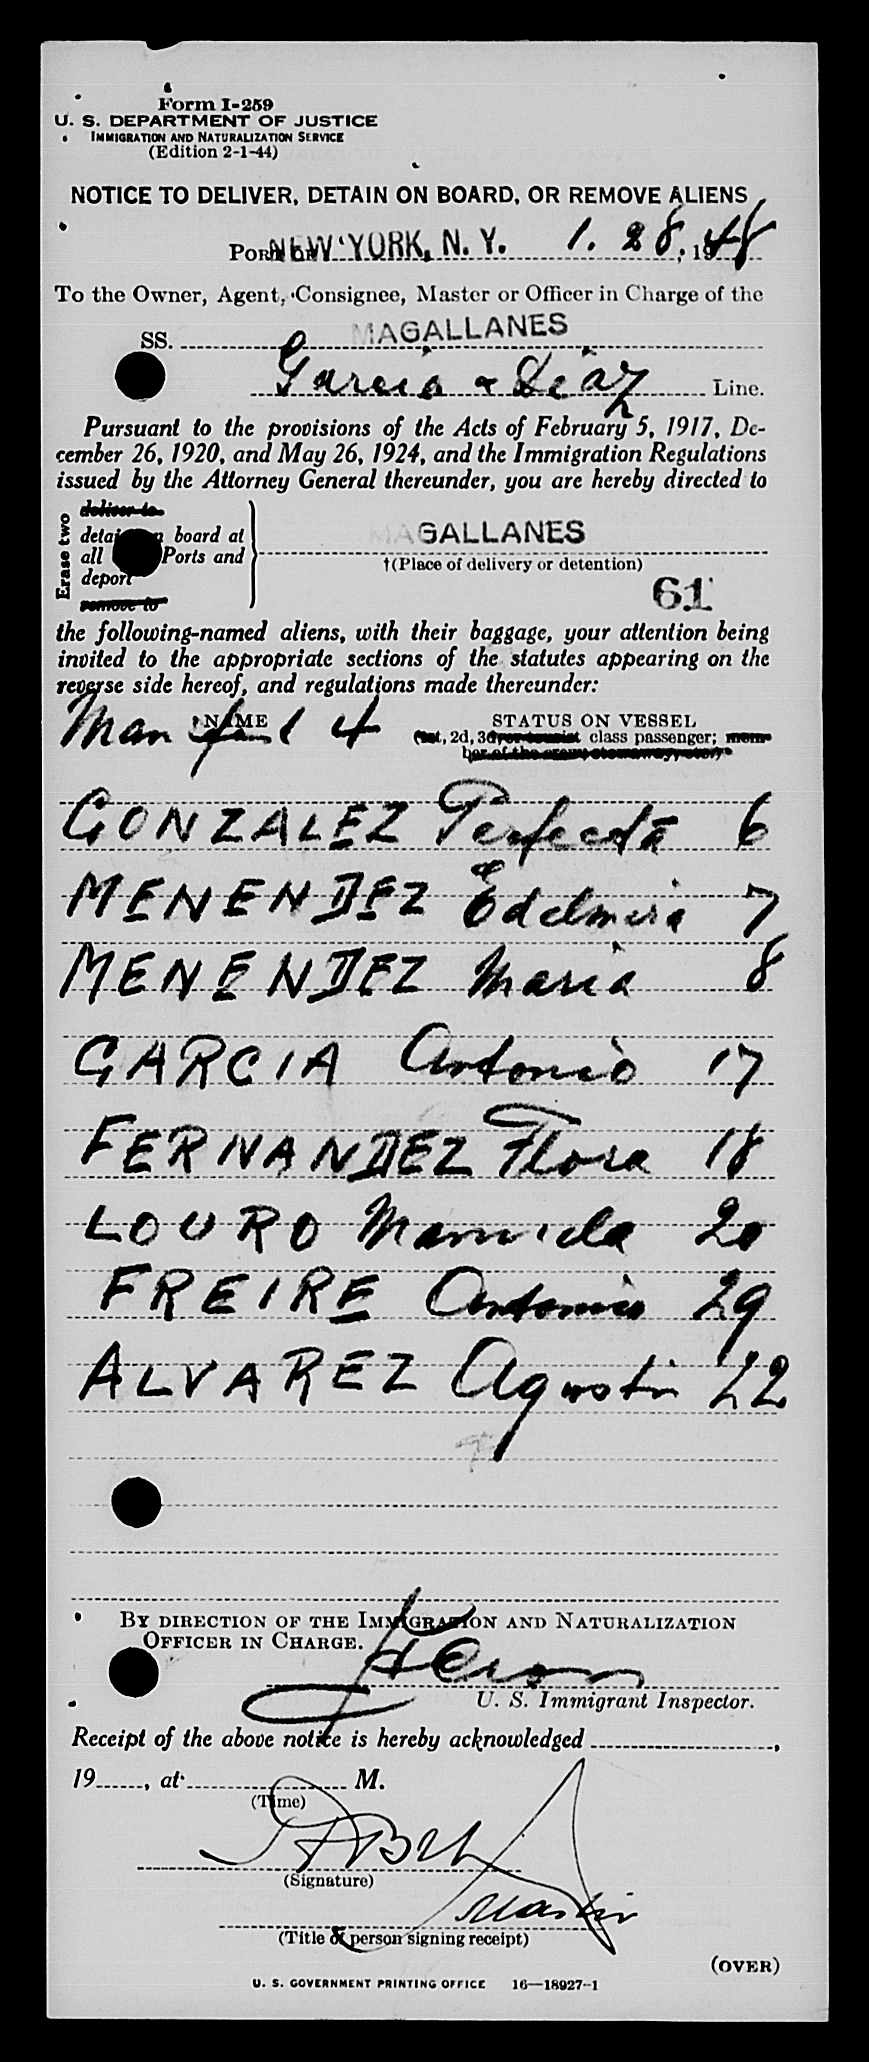 Form I-259
U. S. DEPARTMENT OF JUSTICE
IMMIGRATION AND NATURALIZATION SERVICE
(Edition 2-1-44)
NOTICE TO DELIVER, DETAIN ON BOARD, OR REMOVE ALIENS
PORT OF NEW YORK, N. Y. 1. 28, 1948
To the Owner, Agent, Consignee, Master or Officer in Charge of the
SS. MAGALLANES
Garcia & Diaz Line.
Pursuant to the provisions of the Acts of February 5, 1917, De-
cember 26, 1920, and May 26, 1924, and the Immigration Regulations
issued by the Attorney General thereunder, you are hereby directed to
Erase two
deliver to
detain on board at
all Ports and
deport
remove to
MAGALLANES
†(Place of delivery or detention)
61
the following-named aliens, with their baggage, your attention being
invited to the appropriate sections of the statutes appearing on the
reverse side hereof, and regulations made thereunder:
NAME STATUS ON VESSEL
Manifest 4 (1st, 2d, 3d, or tourist class passenger; mem-
ber of the crew, stowaway, etc.)
GONZALEZ Perfecta 6
MENENDEZ Edelmira 7
MENENDEZ Maria 8
GARCIA Antonio 17
FERNANDEZ Flora 18
LOURO Manuela 20
FREIRE Antonio 29
ALVAREZ Agustin 22
BY DIRECTION OF THE IMMIGRATION AND NATURALIZATION
OFFICER IN CHARGE.
U. S. Immigrant Inspector.
Receipt of the above notice is hereby acknowledged ,
19 , at M.
(Time)
(Signature)
(Title of person signing receipt)
(OVER)
U. S. GOVERNMENT PRINTING OFFICE 16—18927-1